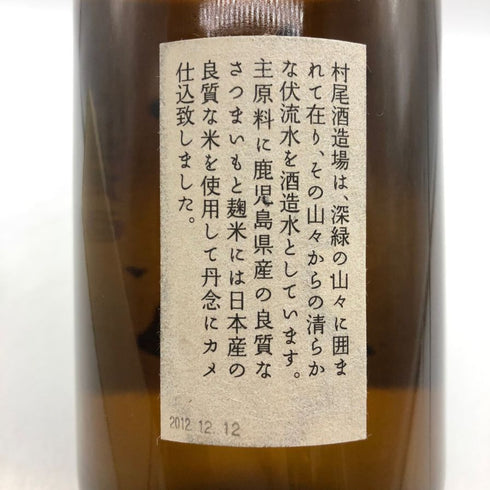 村尾酒造場は、深緑の山々に囲ま
れて在り、その山々からの清らか
な伏流水を酒造水としています。
主原料に鹿児島県産の良質な
さつまいもと麹米には日本産の
良質な米を使用して丹念にカメ
仕込致しました。
2012.12.12